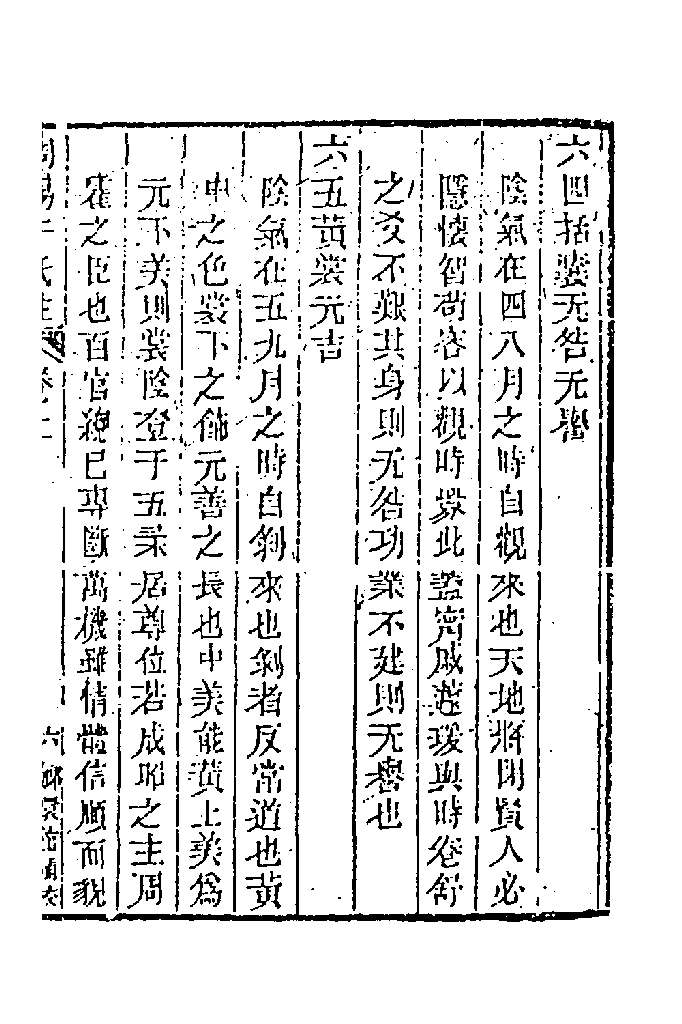 六四括囊无咎无譽
陰氣在四八月之時自觀來也天地將閉賢人必
隱懷智苟容以觀時釁此葢甯戚蘧瑗與時卷舒
之爻不艱其身則无咎功業不建則无譽也
六五黄裳元吉
陰氣在五九月之時自剝來也剝者反常道也黄
中之色裳下之飾元善之長也中美能黄上美爲
元下美則裳陰登于五柔居尊位若成昭之主周
霍之臣也百官總已專斷萬機雖情體信順而貌
周易干氏注 卷上 六